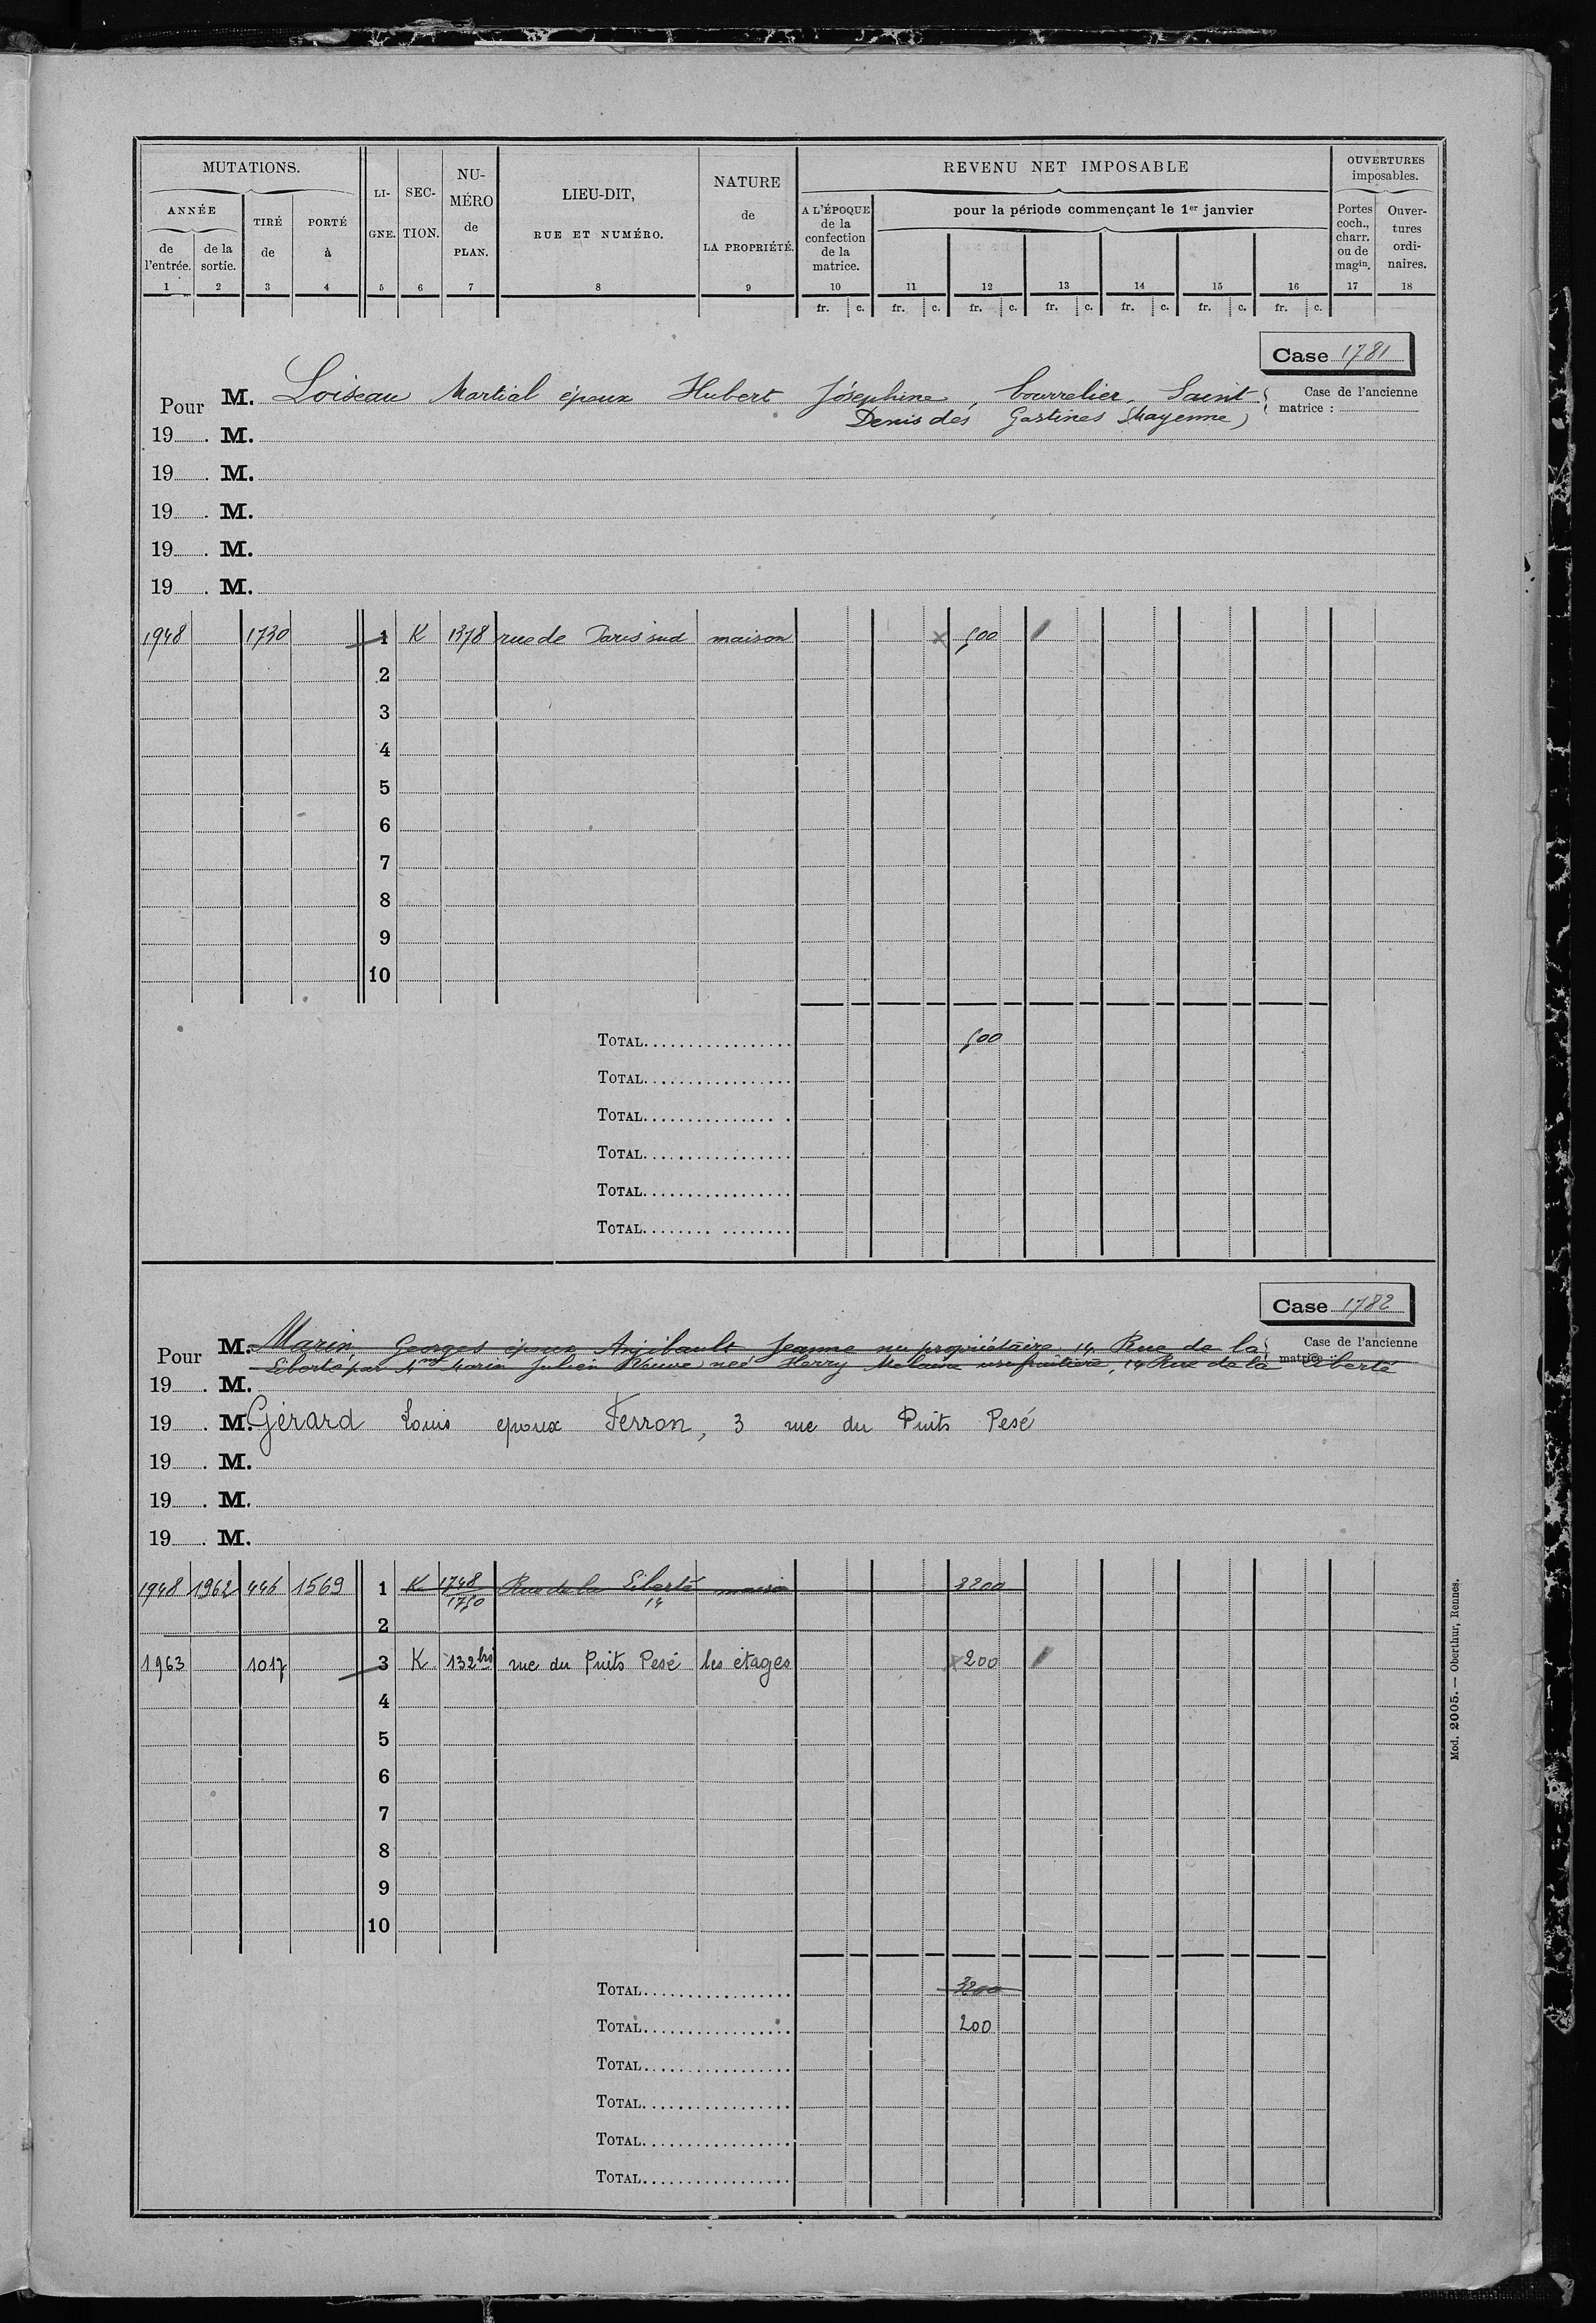 MUTATIONS.
ANNÉE
de l'entrée.
de la sortie.
TIRÉ de
PORTÉ à
LI-GNE.
SEC-TION.
NU-MÉRO de PLAN.
LIEU-DIT,
RUE ET NUMÉRO.
NATURE de LA PROPRIÉTÉ.
REVENU NET IMPOSABLE
A L'ÉPOQUE de la confection de la matrice.
pour la période commençant le 1er janvier
OUVERTURES imposables.
Portes coch., charr. ou de magin.
Ouver-tures ordi-naires.
1 2 3 4 5 6 7 8 9 10 11 12 13 14 15 16 17 18
fr. c. fr. c. fr. c. fr. c. fr. c. fr. c. fr. c.
Case 1781
Pour M. Loiseau Martial époux Hubert Joséphine, bourrelier, Saint
Case de l'ancienne matrice :
Denis des Gastines (Mayenne)
19 . M.
19 . M.
19 . M.
19 . M.
19 . M.
1948 1730 1 K 1378 rue de Paris sud maison x 500
2
3
4
5
6
7
8
9
10
TOTAL 500
TOTAL
TOTAL
TOTAL
TOTAL
TOTAL
Case 1782
Pour M. Marin Georges époux Anjibault Jeanne nu propriétaire 14 Rue de la
Case de l'ancienne matrice :
Liberté par Marin Julien Veuve née Herry usufruitière, 14 Rue de la Liberté
19 . M.
19 . M. Gérard Louis epoux Ferron, 3 rue du Puits Pesé
19 . M.
19 . M.
19 . M.
1948 1962 446 1569 1 K 1748 Rue de la Liberté maison 3200
1750 14
2
1963 1017 3 K 132 bis rue du Puits Pesé les étages x 200
4
5
6
7
8
9
10
TOTAL 3200
TOTAL 200
TOTAL
TOTAL
TOTAL
TOTAL
Mod. 2005. — Oberthur, Rennes.